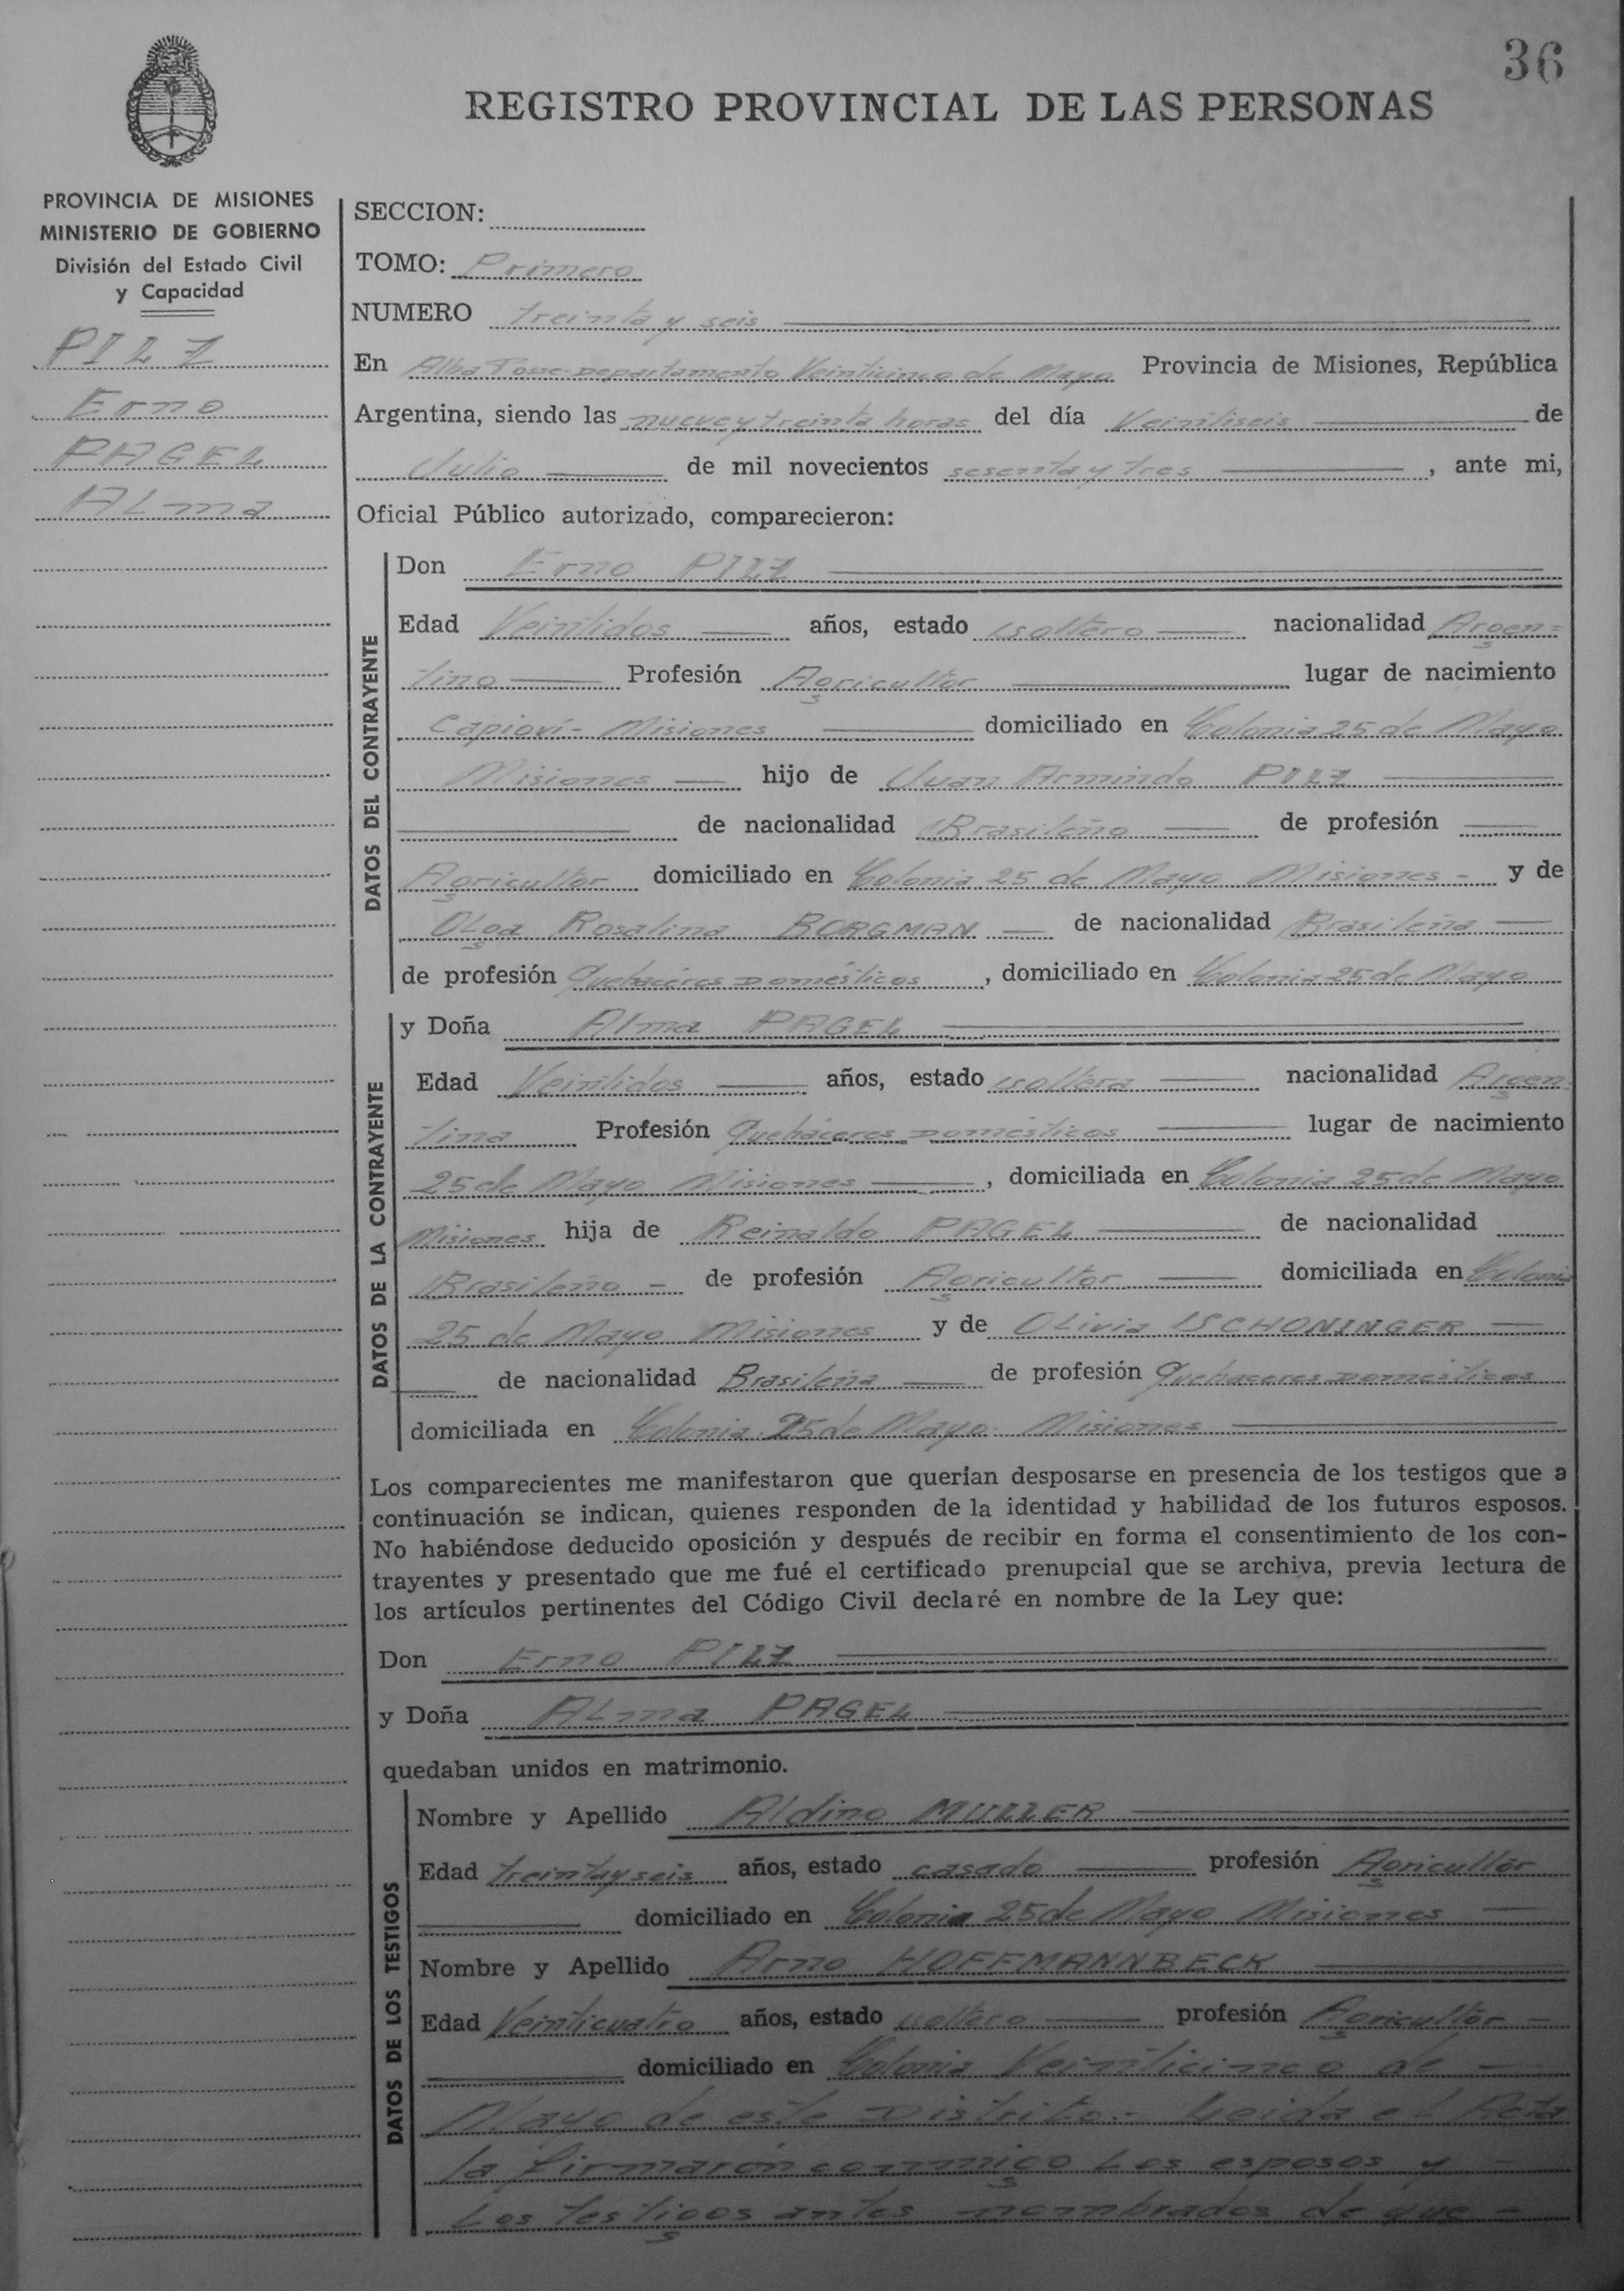 36
REGISTRO PROVINCIAL DE LAS PERSONAS
PROVINCIA DE MISIONES
MINISTERIO DE GOBIERNO
División del Estado Civil
y Capacidad
PILZ
Erno
PAGEL
ALma
SECCION:
TOMO: Primero
NUMERO treinta y seis
En Alba Posse-Departamento Veinticinco de Mayo Provincia de Misiones, República
Argentina, siendo las nueve y treinta horas del día Veintiseis de
Julio de mil novecientos sesenta y tres, ante mi,
Oficial Público autorizado, comparecieron:
DATOS DEL CONTRAYENTE
Don Erno PILZ
Edad Veintidos años, estado soltero nacionalidad Argen=
tino Profesión Agricultor lugar de nacimiento
Capioví - Misiones domiciliado en Colonia 25 de Mayo
Misiones hijo de Juan Armindo PILZ
de nacionalidad Brasileño de profesión
Agricultor domiciliado en Colonia 25 de Mayo Misiones - y de
OLga Rosalina BORGMAN de nacionalidad Brasileña
de profesión Quehaceres Domésticos, domiciliado en Colonia 25 de Mayo
DATOS DE LA CONTRAYENTE
y Doña Alma PAGEL
Edad Veintidos años, estado soltera nacionalidad Argen
tina Profesión Quehaceres Domésticos lugar de nacimiento
25 de Mayo Misiones, domiciliada en Colonia 25 de Mayo
Misiones hija de Reinaldo PAGEL de nacionalidad
Brasileño - de profesión Agricultor domiciliada en Colonia
25 de Mayo Misiones y de OLivia SCHONINGER
de nacionalidad Brasileña de profesión Quehaceres Domésticos
domiciliada en Colonia 25 de Mayo Misiones
Los comparecientes me manifestaron que querían desposarse en presencia de los testigos que a
continuación se indican, quienes responden de la identidad y habilidad de los futuros esposos.
No habiéndose deducido oposición y después de recibir en forma el consentimiento de los con-
trayentes y presentado que me fué el certificado prenupcial que se archiva, previa lectura de
los artículos pertinentes del Código Civil declaré en nombre de la Ley que:
Don Erno PILZ
y Doña ALma PAGEL
quedaban unidos en matrimonio.
DATOS DE LOS TESTIGOS
Nombre y Apellido Aldino MULLER
Edad treinta y seis años, estado casado profesión Agricultor
domiciliado en Colonia 25 de Mayo Misiones
Nombre y Apellido Arno HOFFMANNBECK
Edad Veinticuatro años, estado soltero profesión Agricultor -
domiciliado en Colonia Veinticinco de
Mayo de este Distrito.- Leida el Acta
la firmaron conmigo Los esposos y
Los testigos antes nombrados de que -